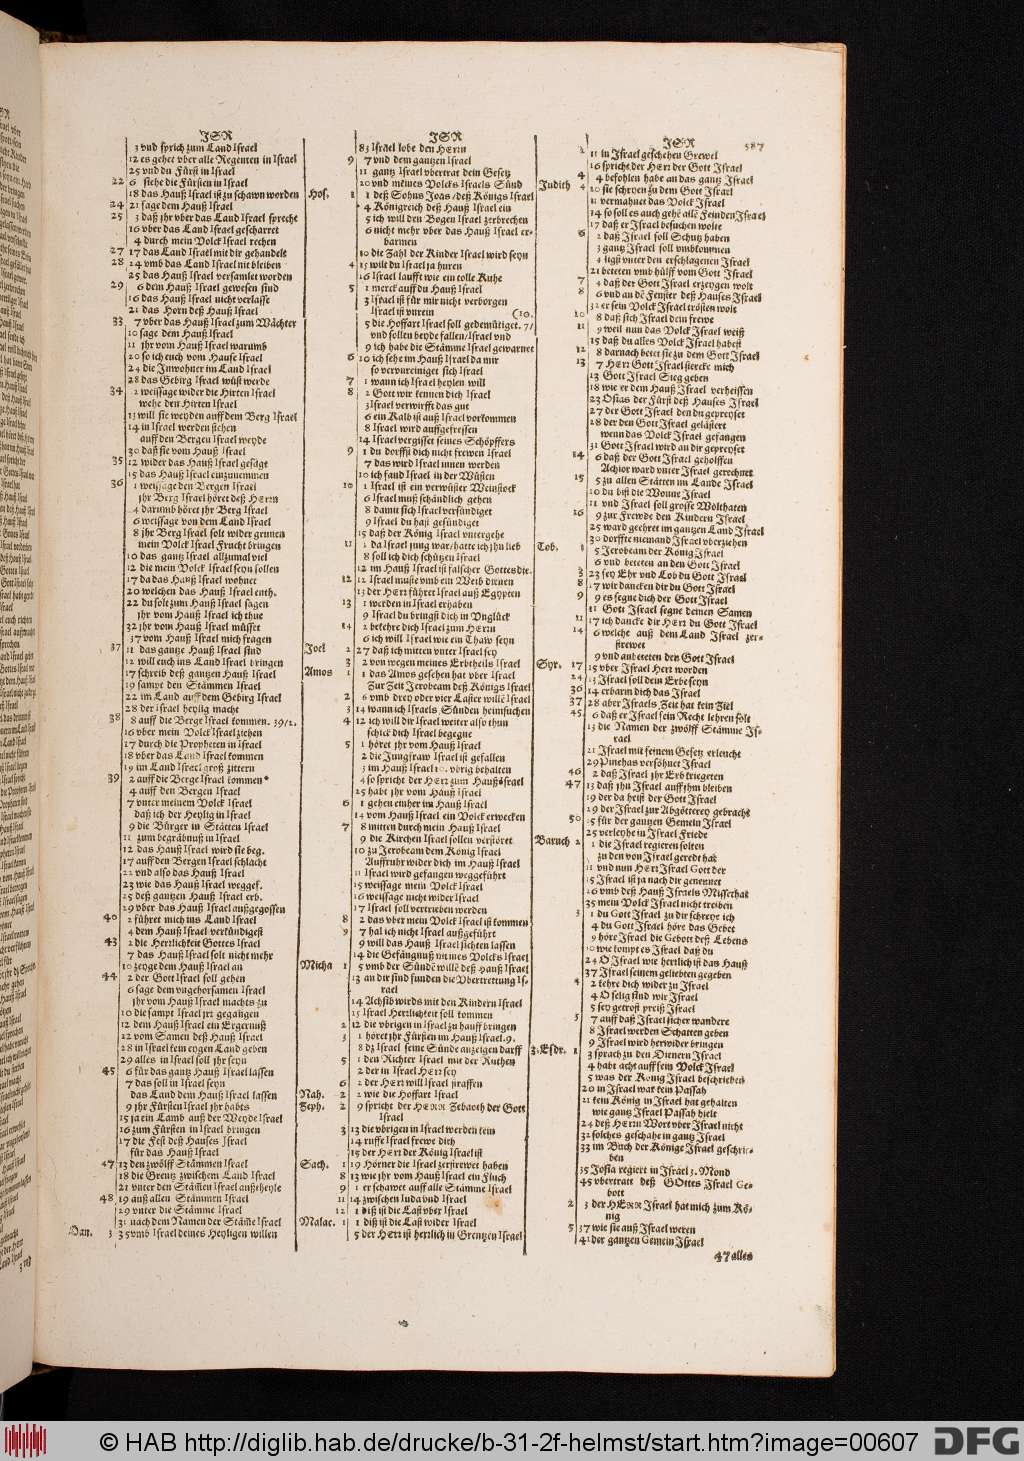 JSR
3 vnd sprich zum Land Israel
12 es gehet vber alle Regenten in Israel
25 vnd du Fürst in Israel
22 6 siehe die Fürsten in Israel
18 das Hauß Israel ist zu schawm worden
24 21 sage dem Hauß Israel
25 3 daß jhr vber das Land Israel spreche
16 vber das Land Israel gescharret
4 durch mein Volck Israel rechen
27 17 das Land Israel mit dir gehandelt
28 24 vmb das Land Israel nit bleiben
25 das Hauß Israel versamlet worden
29 6 dem Hauß Israel gewesen sind
16 das Hauß Israel nicht verlasse
21 das Horn deß Hauß Israel
33 7 vber das Hauß Israel zum Wächter
10 sage dem Hauß Israel
11 jhr vom Hauß Israel warumb
20 so ich euch vom Hause Israel
24 die Inwohner im Land Israel
28 das Gebirg Israel wüst werde
34 2 weissage wider die Hirten Israel
wehe den Hirten Israel
13 will sie weyden auff dem Berg Israel
14 in Israel werden stehen
auff den Bergen Israel weyde
30 daß sie vom Hauß Israel
35 12 wider das Hauß Israel gesagt
15 das Hauß Israel einzunemmen
36 1 weissage den Bergen Israel
jhr Berg Israel höret deß HErrn
4 darumb höret jhr Berg Israel
6 weissage von dem Land Israel
8 jhr Berg Israel solt wider grunen
mein Volck Israel Frucht bringen
10 das gantz Israel allzumal viel
12 die mein Volck Israel seyn sollen
17 da das Hauß Israel wohnet
20 welchen das Hauß Israel enth.
22 du solt zum Hauß Israel sagen
jhr vom Hauß Israel ich thue
32 jhr vom Hauß Israel müsset
37 vom Hauß Israel mich fragen
37 11 das gantze Hauß Israel sind
12 will euch ins Land Israel bringen
17 schreib deß gantzen Hauß Israel
19 sampt den Stämmen Israel
22 im Land auff dem Gebirg Israel
28 der Israel heylig macht
38 8 auff die Berge Israel kommen. 39/2.
16 vber mein Volck Israel ziehen
17 durch die Propheten in Israel
18 vber das Land Israel kommen
19 im Land Israel groß zittern
39 2 auff die Berge Israel kommen
4 auff den Bergen Israel
7 vnter meinem Volck Israel
daß ich der Heylig in Israel
9 die Bürger in Stätten Israel
11 zum begräbnuß in Israel
12 das Hauß Israel wird sie beg.
17 auff den Bergen Israel schlacht
22 vnd also das Hauß Israel
23 wie das Hauß Israel weggef.
25 deß gantzen Hauß Israel erb.
29 vber das Hauß Israel außgegossen
40 2 führet mich ins Land Israel
4 dem Hauß Israel verkündigest
43 2 die Herrlichkeit Gottes Israel
7 das Hauß Israel solt nicht mehr
10 zeyge dem Hauß Israel an
44 2 der Gott Israel soll gehen
6 sage dem vngehorsamen Israel
jhr vom Hauß Israel machts zu
10 die sampt Israel jrr gegangen
12 dem Hauß Israel ein Ergernuß
22 vom Samen deß Hauß Israel
28 in Israel kein eygen Land geben
29 alles in Israel soll jhr seyn
45 6 für das gantz Hauß Israel lassen
7 das soll in Israel seyn
das Land dem Hauß Israel lassen
9 jhr Fürsten Israel jhr habts
15 ja ein Lamb auß der Weyde Israel
16 zum Fürsten in Israel bringen
17 die Fest deß Hauses Israel
für das Hauß Israel
47 13 den zwölff Stämmen Israel
18 die Grentz zwischem Land Israel
21 vnter den Stämmen Israel außtheyle
48 19 auß allen Stämmen Israel
29 vnter die Stämme Israel
31 nach dem Namen der Stäme Israel
Dan. 3 35 vmb Israel deines Heyligen willen
JSR
83 Israel lobe den HErrn
9 7 vnd dem gantzen Israel
11 gantz Israel vbertrat dein Gesetz
20 vnd meines Volcks Israels Sünd
Hos. 1 1 deß Sohns Joas/deß Königs Israel
4 Königreich deß Hauß Israel ein
5 ich will den Bogen Israel zerbrechen
6 nicht mehr vber das Hauß Israel erbarmen
10 die Zahl der Kinder Israel wird seyn
4 15 wilt du Israel ja huren
16 Israel laufft wie ein tolle Kuhe
5 1 merck auff du Hauß Israel
3 Israel ist für mir nicht verborgen
Israel ist vnrein (10.
5 die Hoffart Israel soll gedemütiget. 7/
vnd sollen beyde fallen/Israel vnd
9 ich habe die Stämme Israel gewarnet
6 10 ich sehe im Hauß Israel da mir
so verunreiniget sich Israel
7 1 wann ich Israel heylen will
8 2 Gott wir kennen dich Israel
3 Israel verwirfft das gut
6 ein Kalb ist auß Israel vorkommen
8 Israel wird auffgefressen
14 Israel vergisset seines Schöpffers
9 1 du dorffst dich nicht frewen Israel
7 das wird Israel innen werden
10 ich fand Israel in der Wüsten
10 1 Israel ist ein verwüster Weinstock
6 Israel muß schändlich gehen
8 damit sich Israel versündiget
9 Israel du hast gesündiget
15 daß der König Israel vntergehe
11 1 da Israel jung war/hatte ich jhn lieb
8 soll ich dich schützen Israel
12 im Hauß Israel ist falscher Gottesdie.
12 12 Israel muste vmb ein Weib dienen
13 der HErr führet Israel auß Egypten
13 1 werden in Israel erhaben
9 Israel du bringst dich in Vnglück
14 2 bekehre dich Israel zum HErrn
6 ich will Israel wie ein Thaw seyn
Joel 2 27 daß ich mitten vnter Israel sey
3 2 von wegen meines Erbtheils Israel
Amos 1 1 das Amos gesehen hat vber Israel
Zur Zeit Jerobeam deß Königs Israel
2 6 vmb drey oder vier Laster willen Israel
3 14 wann ich Israels Sünden heimsuchen
4 12 ich will dir Israel weiter also thun
schick dich Israel begegne
5 1 höret jhr vom Hauß Israel
2 die Jungfraw Israel ist gefallen
3 im Hauß Israel 10. vbrig behalten
4 so spricht der HErr zum Hauß Israel
25 habt jhr vom Hauß Israel
6 1 gehen einher im Hauß Israel
14 vom Hauß Israel ein Volck erwecken
7 8 mitten durch mein Hauß Israel
9 die Kirchen Israel sollen verstöret
10 zu Jerobeam dem König Israel
Auffruhr wider dich im Hauß Israel
11 Israel wird gefangen weggeführt
15 weissage mein Volck Israel
16 weissage nicht wider Israel
17 Israel soll vertrieben werden
8 2 das vber mein Volck Israel ist kommen
9 7 hab ich nicht Israel außgeführt
9 will das Hauß Israel sichten lassen
14 die Gefängnuß meines Volcks Israel
Micha 1 5 vmb der Sünde willen deß Hauß Israel
13 an dir sind funden die Vbertrettung Israel
14 Achsib wirds mit den Kindern Israel
15 Israel Herrlichkeit soll kommen
2 12 die vbrigen in Israel zu hauff bringen
3 1 höret jhr Fürsten im Hauß Israel. 9.
8 dz Israel seine Sünde anzeigen darff
5 1 den Richter Israel mit der Ruthen
2 der in Israel HErr sey
6 2 der HErr will Israel straffen
Nah. 2 2 wie die Hoffart Israel
Zeph. 2 9 spricht der HERR Zebaoth der Gott
Israel
3 13 die vbrigen in Israel werden kein
14 ruffe Israel frewe dich
15 der HErr der König Israel ist
Sach. 1 19 Hörner die Israel zerstrewet haben
8 13 wie jhr vom Hauß Israel ein Fluch
9 1 er schawet auff alle Stämme Israel
11 14 zwischen Juda vnd Israel
12 1 diß ist die Last vber Israel
Malac. 1 1 diß ist die Last wider Israel
5 der HErr ist herrlich in Grentzen Israel
JSR 587
2 11 in Israel geschehen Grewel
16 spricht der HErr der Gott Israel
4 4 befohlen habe an das gantz Israel
Judith 4 10 sie schryen zu dem Gott Israel
11 vermahnet das Volck Israel
14 so soll es auch gehe alle Feinden Israel
17 daß er Israel besuchen wolte
6 2 daß Israel soll Schutz haben
3 gantz Israel soll vmbkommen
4 ligst vnter den erschlagenen Israel
21 beteten vmb hülff vom Gott Israel
7 4 daß der Gott Israel erzeygen wolt
8 6 vnd an de Fenster deß Hauses Israel
32 er sein Volck Israel trösten wolt
10 8 daß sich Israel dein frewe
11 9 weil nun das Volck Israel weiß
15 daß du alles Volck Israel habest
12 8 darnach betet sie zu dem Gott Israel
13 7 HErr Gott Israel stercke mich
13 Gott Israel Sieg geben
18 wie er dem Hauß Israel verheissen
23 Osias der Fürst deß Hauses Israel
27 der Gott Israel den du gepreyset
28 der den Gott Israel gelästert
wenn das Volck Israel gefangen
31 Gott Israel wird an dir gepreyset
14 6 daß der Gott Israel geholffen
Achior ward vnter Israel gerechnet
15 5 zu allen Stätten im Lande Israel
10 du bist die Wonne Israel
11 vnd Israel soll grosse Wolthaten
16 9 zur Frewde den Kindern Israel
25 ward geehret im gantzen Land Israel
30 dorffte niemand Israel vberziehen
Tob. 1 5 Jerobeam der König Israel
6 vnd beteten an den Gott Israel
3 23 sey Ehr vnd Lob du Gott Israel
8 17 wir dancken dir du Gott Israel
9 9 es segne dich der Gott Israel
11 Gott Israel segne deinen Samen
11 17 ich dancke dir HErr du Gott Israel
14 6 welche auß dem Land Israel zerstrewet
9 vnd anbeteten den Gott Israel
Syr. 17 15 vber Israel Herr worden
24 13 Israel soll dein Erbe seyn
36 14 erbarm dich das Israel
37 28 aber Israels Zeit hat kein Ziel
45 6 daß er Israel sein Recht lehren solt
13 die Namen der zwölff Stämme Israel
21 Israel mit seinem Gesetz erleucht
29 Pinehas versöhnet Israel
46 2 daß Israel jhr Erb kriegeten
47 13 daß jhn Israel auff jhm bleiben
19 der da heist der Gott Israel
29 der Israel zur Abgötterey gebracht
50 15 für der gantzen Gemein Israel
25 verleyhe in Israel Friede
Baruch 2 1 die Israel regieren solten
zu den von Israel geredt hat
11 vnd nun HErr Israel Gott der
15 Israel ist ja nach dir genennet
26 vmb deß Hauß Israels Missethat
35 mein Volck Israel nicht treiben
3 1 du Gott Israel zu dir schreye ich
4 du Gott Israel höre das Gebet
9 höre Israel die Gebott deß Lebens
10 wie kompt es Israel daß du
24 O Israel wie herrlich ist das Hauß
37 Israel seinem geliebten gegeben
4 2 kehre dich wider zu Israel
4 O selig sind wir Israel
5 sey getrost preiß Israel
5 7 auff daß Israel sicher wandere
8 Israel werden Schatten geben
9 Israel wird herwider bringen
3. Esdr. 1 3 sprach zu den Dienern Israel
4 habt acht auff sein Volck Israel
5 was der König Israel beschrieben
20 in Israel war kein Passah
21 kein König in Israel hat gehalten
wie gantz Israel Passah hielt
24 deß HErrn Wort vber Israel nicht
32 solches geschahe in gantz Israel
33 im Buch der Könige Israel geschrieben
35 Josia regiert in Israel 3. Mond
45 vbertratt deß GOttes Israel Gebott
2 3 der HERR Israel hat mich zum König
5 37 wie sie auß Israel weren
41 der gantzen Gemein Israel
47 alles
© HAB http://diglib.hab.de/drucke/b-31-2f-helmst/start.htm?image=00607
DFG